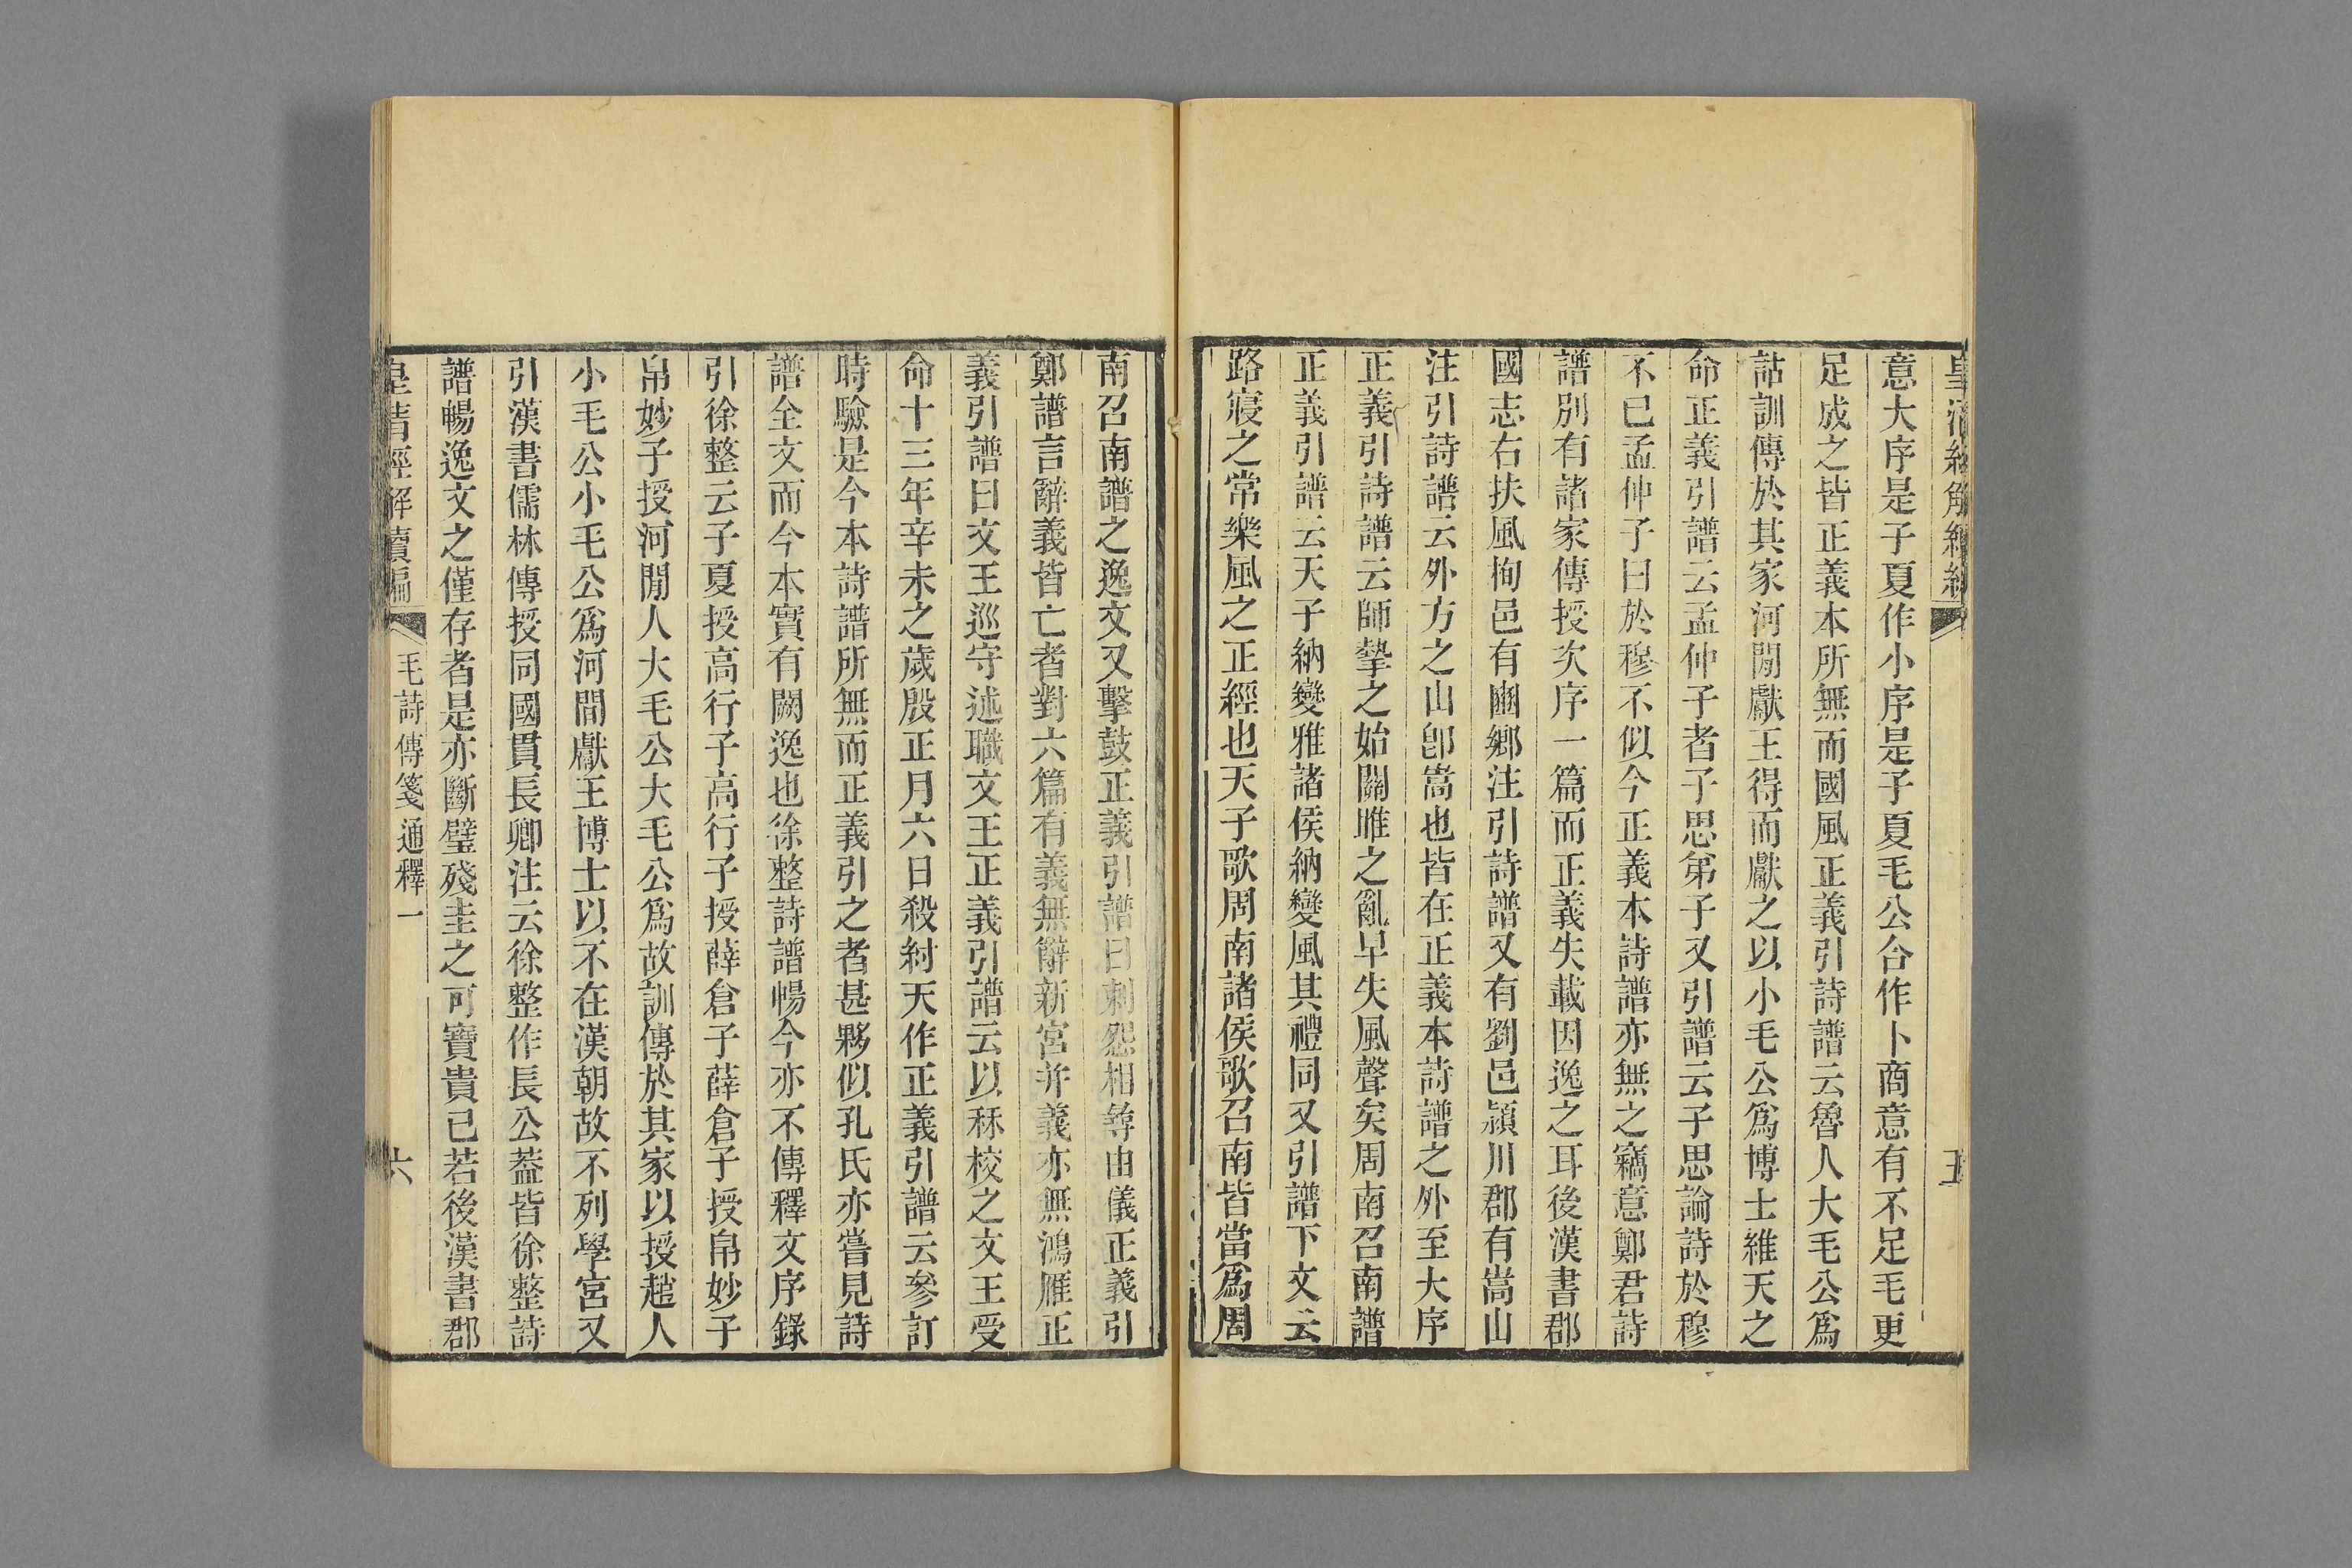 意大序是子夏作小序是子夏毛公合作卜商意有不足毛更
足成之皆正義本所無而國風正義引詩譜云魯人大毛公爲
詁訓傳於其家河閒獻王得而獻之以小毛公爲博士維天之
命正義引譜云孟仲子者子思弟子又引譜云子思論詩於穆
不已孟仲子曰於穆不似今正義本詩譜亦無之竊意鄭君詩
譜別有諸家傳授次序一篇而正義失載因逸之耳後漢書郡
國志右扶風栒邑有豳鄉注引詩譜又有劉邑潁川郡有嵩山
注引詩譜云外方之山卽嵩也皆在正義本詩譜之外至大序
正義引詩譜云師摯之始關雎之亂早失風聲矣周南召南譜
正義引譜云天子納變雅諸侯納變風其禮同又引譜下文云
路寢之常樂風之正經也天子歌周南諸侯歌召南皆當爲周
南召南譜之逸文又擊鼓正義引譜曰刺怨相尋由儀正義引
鄭譜言辭義皆亡者對六篇有義無辭新宮并義亦無鴻雁正
義引譜曰文王巡守述職文王正義引譜云以秝校之文王受
命十三年辛未之歲殷正月六日殺紂天作正義引譜云參訂
時驗是今本詩譜所無而正義引之者甚夥似孔氏亦嘗見詩
譜全文而今本實有闕逸也徐整詩譜暢今亦不傳釋文序錄
引徐整云子夏授高行子高行子授薛倉子薛倉子授帛妙子
帛妙子授河閒人大毛公大毛公爲故訓傳於其家以授趙人
小毛公小毛公爲河間獻王博士以不在漢朝故不列學宮又
引漢書儒林傳授同國貫長卿注云徐整作長公葢皆徐整詩
譜暢逸文之僅存者是亦斷璧殘圭之可寶貴已若後漢書郡
皇清經解續編 毛詩傳箋通釋一 六